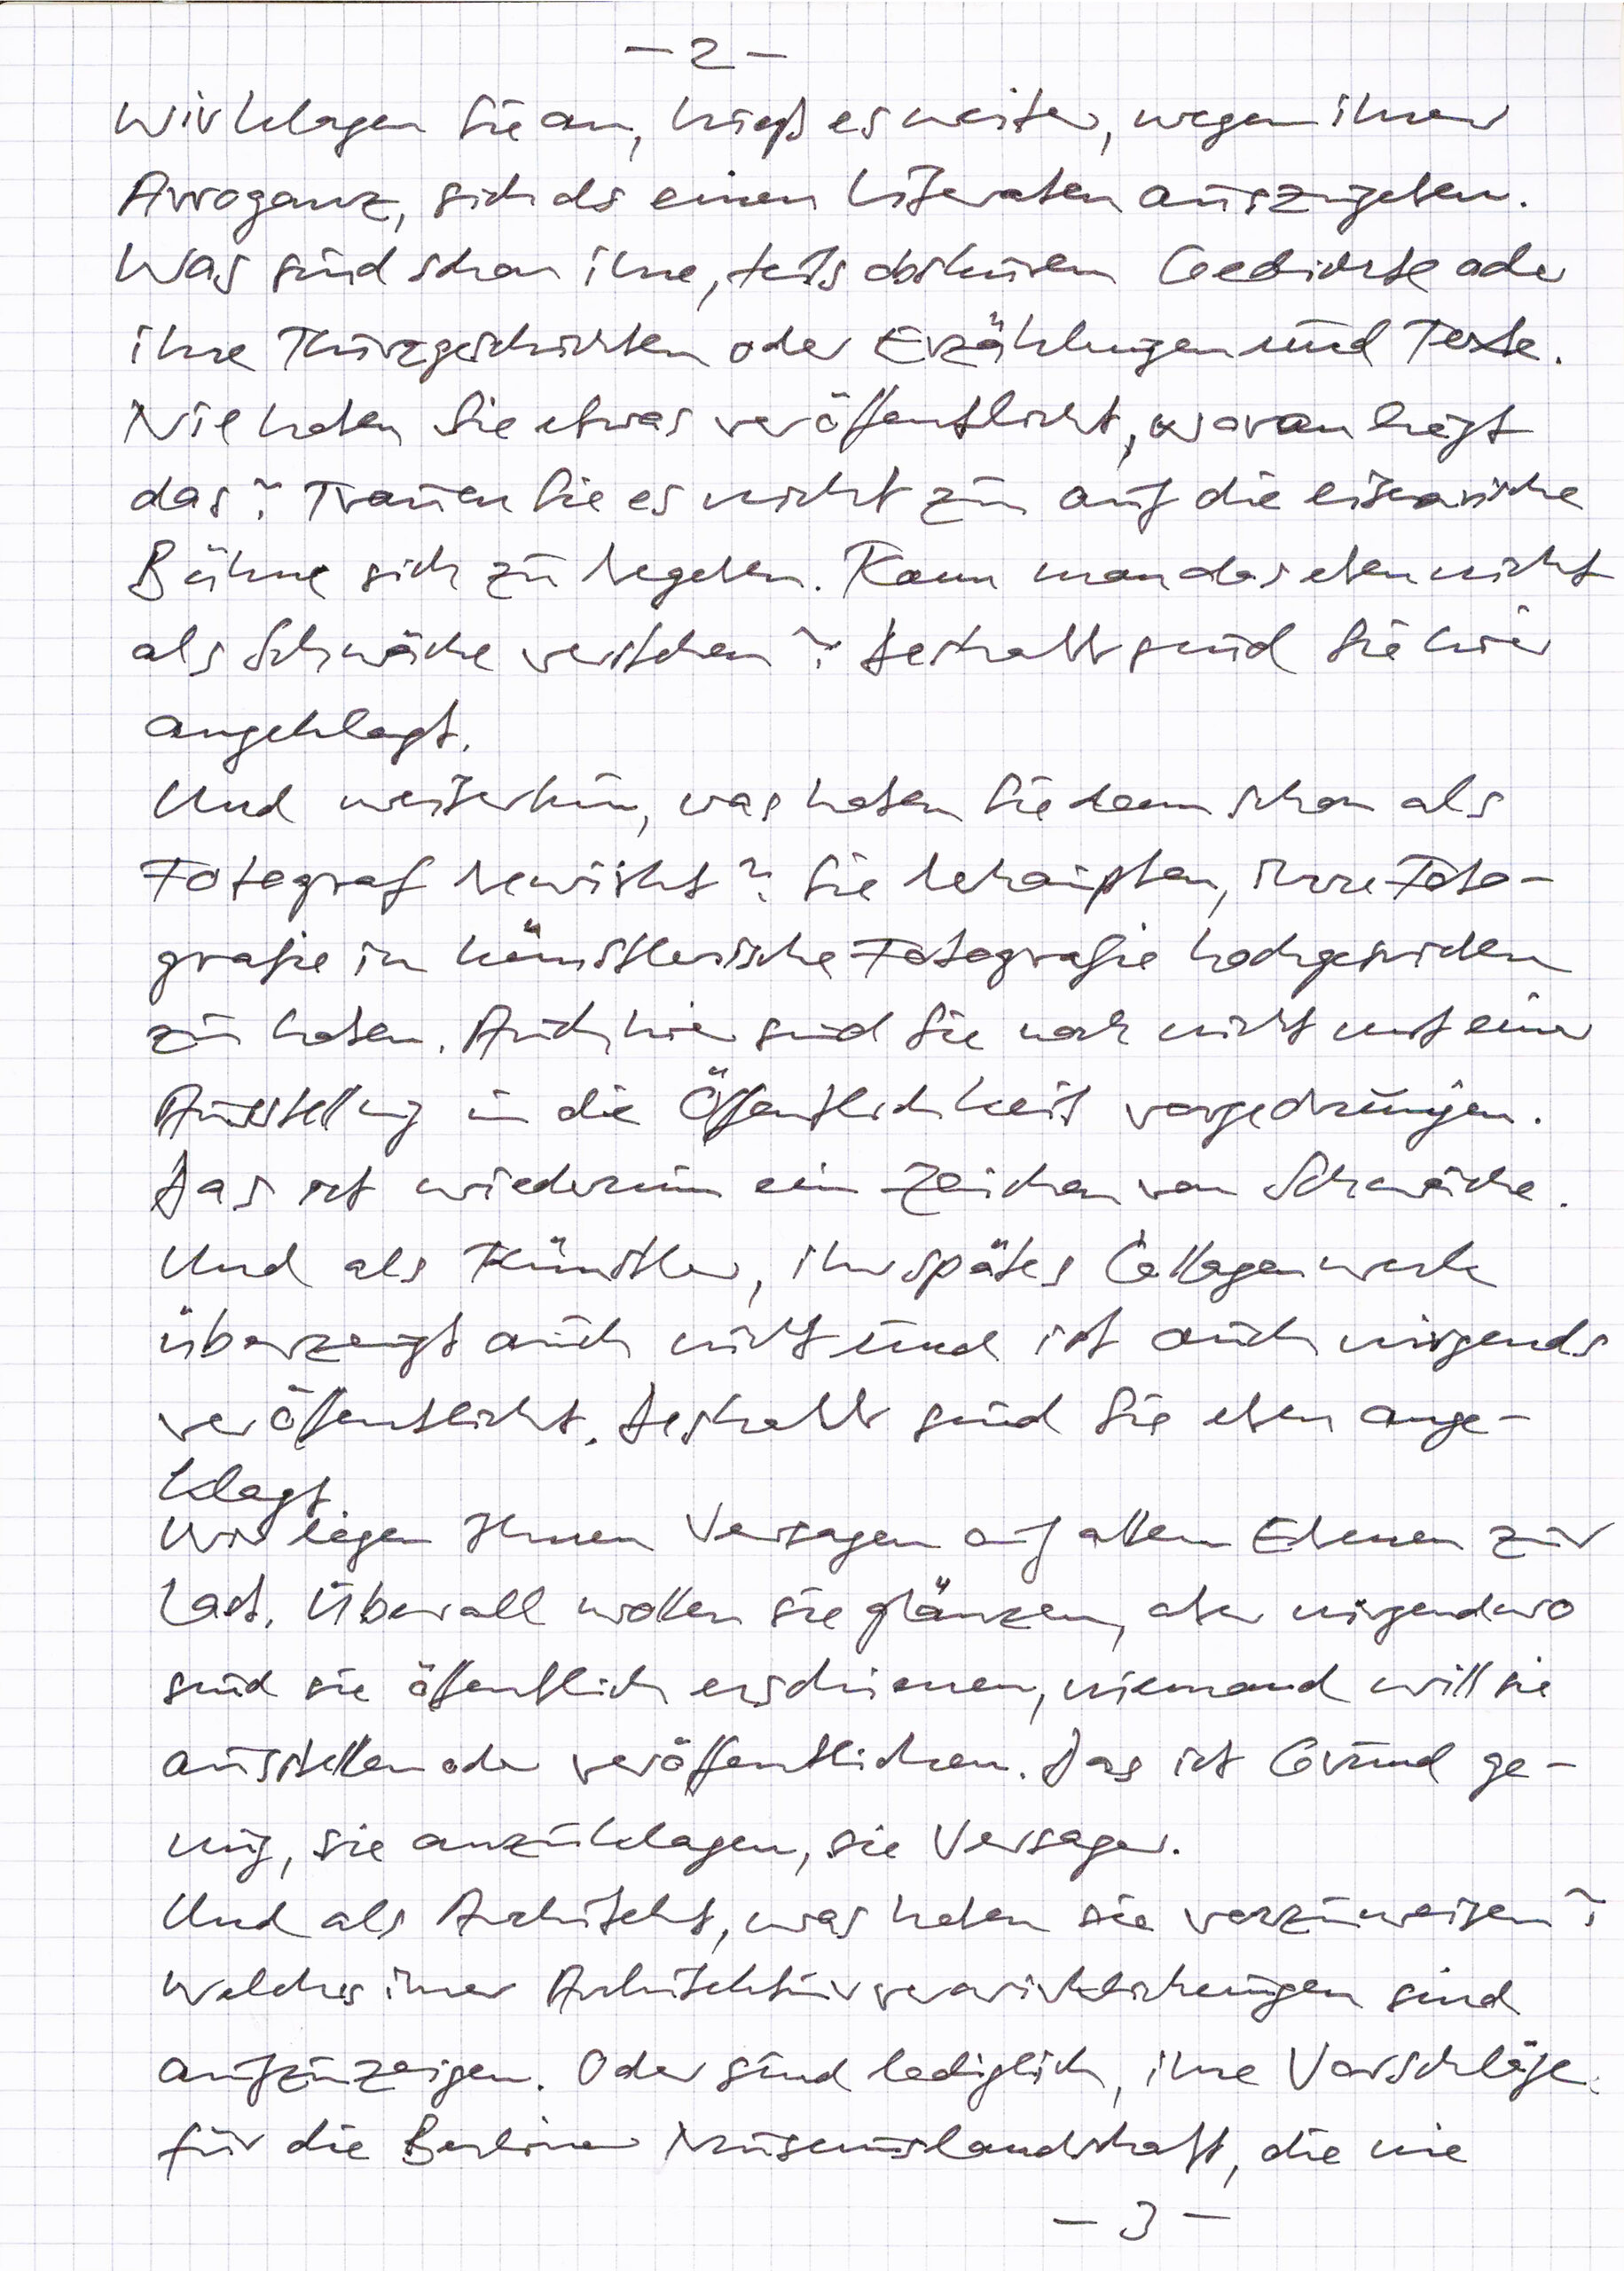 - 2 -
Wir klagen Sie an, hieß es weiter, wegen ihrer
Arroganz, sich als einen Literaten auszugeben.
Was sind schon ihre, teils obskuren Gedichte oder
ihre Kurzgeschichten oder Erzählungen und Texte.
Nie haben Sie etwas veröffentlicht, woran liegt
das? Trauen Sie es nicht zu auf die literarische
Bühne sich zu begeben. Kann man das eben nicht
als Schwäche verstehen? Deshalb sind Sie hier
angeklagt.
Und weiterhin, was haben Sie denn schon als
Fotograf bewirkt? Sie behaupten, ihre Foto-
grafie in künstlerische Fotografie hochgetrieben
zu haben. Auch hier sind Sie noch nicht mit einer
Ausstellung in die Öffentlichkeit vorgedrungen.
Das ist wiederum ein Zeichen von Schwäche.
Und als Künstler, ihr spätes Collagenwerk
überzeugt auch nicht und ist auch nirgends
veröffentlicht. Deshalb sind Sie eben ange-
klagt.
Wir legen Ihnen Versagen auf allen Ebenen zur
Last. Überall wollen sie glänzen, aber nirgendwo
sind sie öffentlich erschienen, niemand will sie
ausstellen oder veröffentlichen. Das ist Grund ge-
nug, sie anzuklagen, sie Versager.
Und als Architekt, was haben sie vorzuweisen?
Welches ihrer Architekturverwirklichungen sind
aufzuzeigen. Oder sind lediglich, ihre Vorschläge
für die Berliner Museumslandschaft, die nie
- 3 -